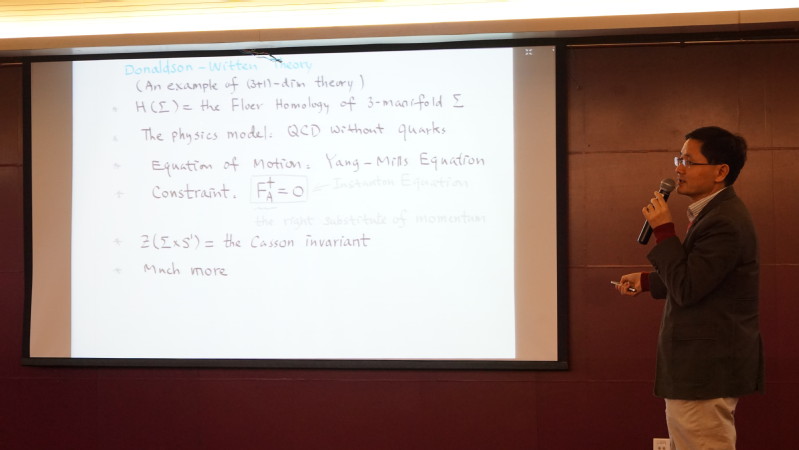 Donaldson-Witten Theory
(An example of (3+1)-dim theory)
H(Σ) = the Floer Homology of 3-manifold Σ
The physics model: QCD without quarks
Equation of Motion: Yang-Mills Equation
Constraint. F_A^+ = 0 — Instanton Equation
the right substitute of momentum
Z(Σ×S¹) = the Casson invariant
Much more